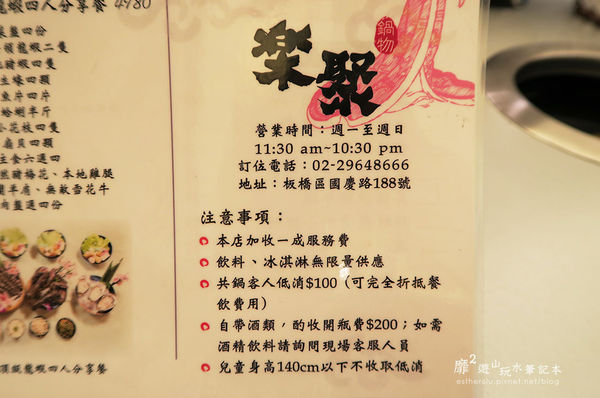 龍蝦四人分享餐 4980
菜盤四份
龍蝦二隻
蝦四隻
生蠔四顆
魚片四片
蛤蜊半斤
小花枝四隻
扇貝四顆
主食六選四
梅花、本地雞腿
羊肩、無敵雪花牛
肉盤選四份
頂級龍蝦四人分享餐
楽聚
鍋物
營業時間：週一至週日
11:30 am~10:30 pm
訂位電話：02-29648666
地址：板橋區國慶路188號
注意事項：
本店加收一成服務費
飲料、冰淇淋無限量供應
共鍋客人低消$100 (可完全折抵餐
飲費用)
自帶酒類，酌收開瓶費$200；如需
酒精飲料請詢問現場客服人員
兒童身高140cm以下不收取低消
靡²遊山玩水筆記本
estherslu.pixnet.net/blog